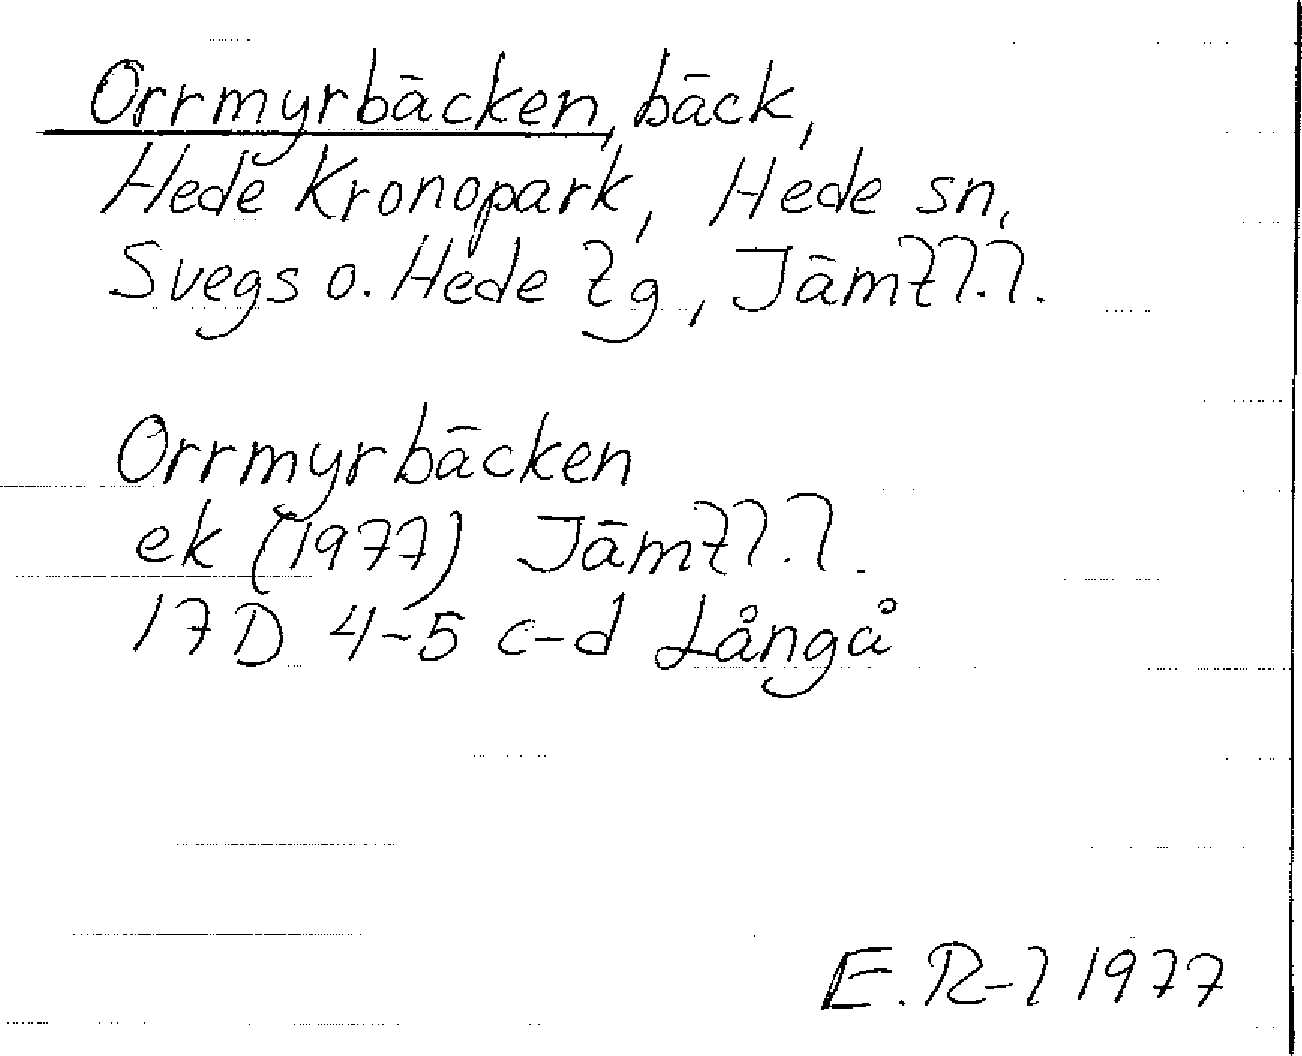 Orrmyrbäcken, bäck,
Hede Kronopark, Hede sn,
Svegs o. Hede tg, Jämtl.l.
Orrmyrbäcken
ek (1977) Jämtl.l.
17D 4-5 c-d Långå
E.R-l 1977